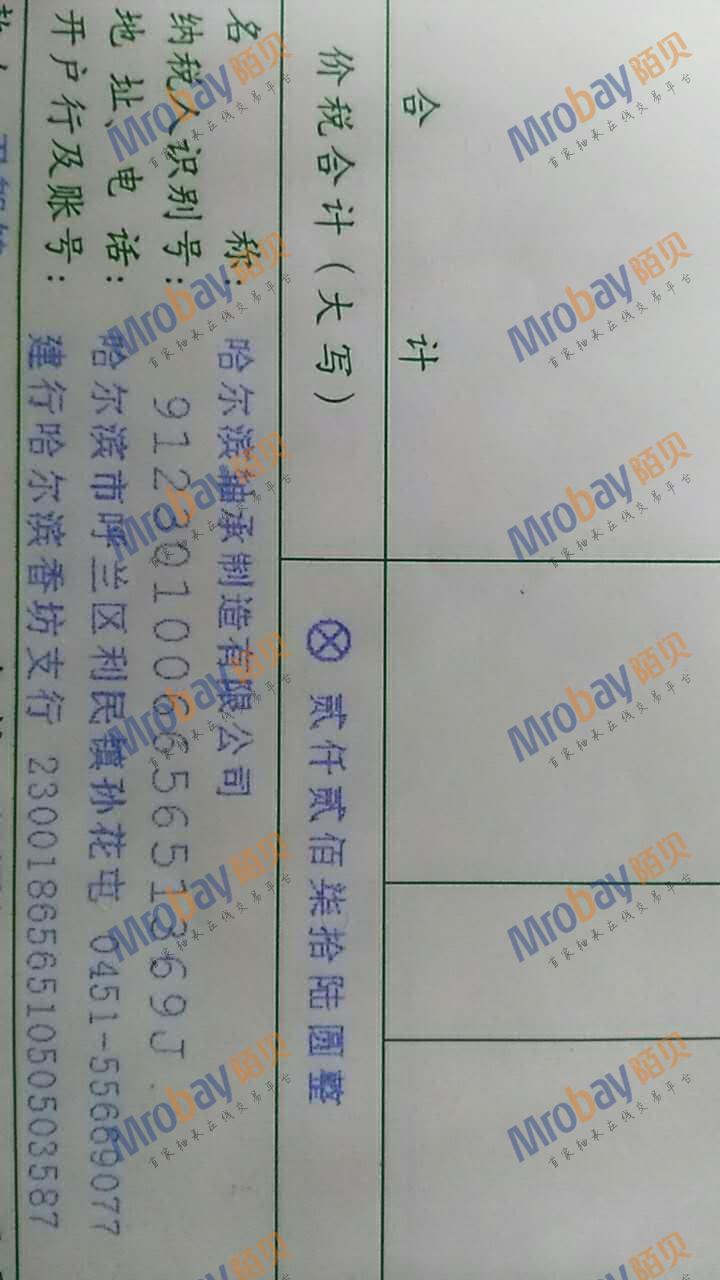 合 计
价税合计（大写） ⊗ 贰仟贰佰柒拾陆圆整
名 称: 哈尔滨轴承制造有限公司
纳税人识别号: 91230100665651369J
地 址、电 话: 哈尔滨市呼兰区利民镇孙花屯 0451-55669077
开户行及账号: 建行哈尔滨香坊支行 23001865651050503587
Mrobay陌贝
首家轴承在线交易平台